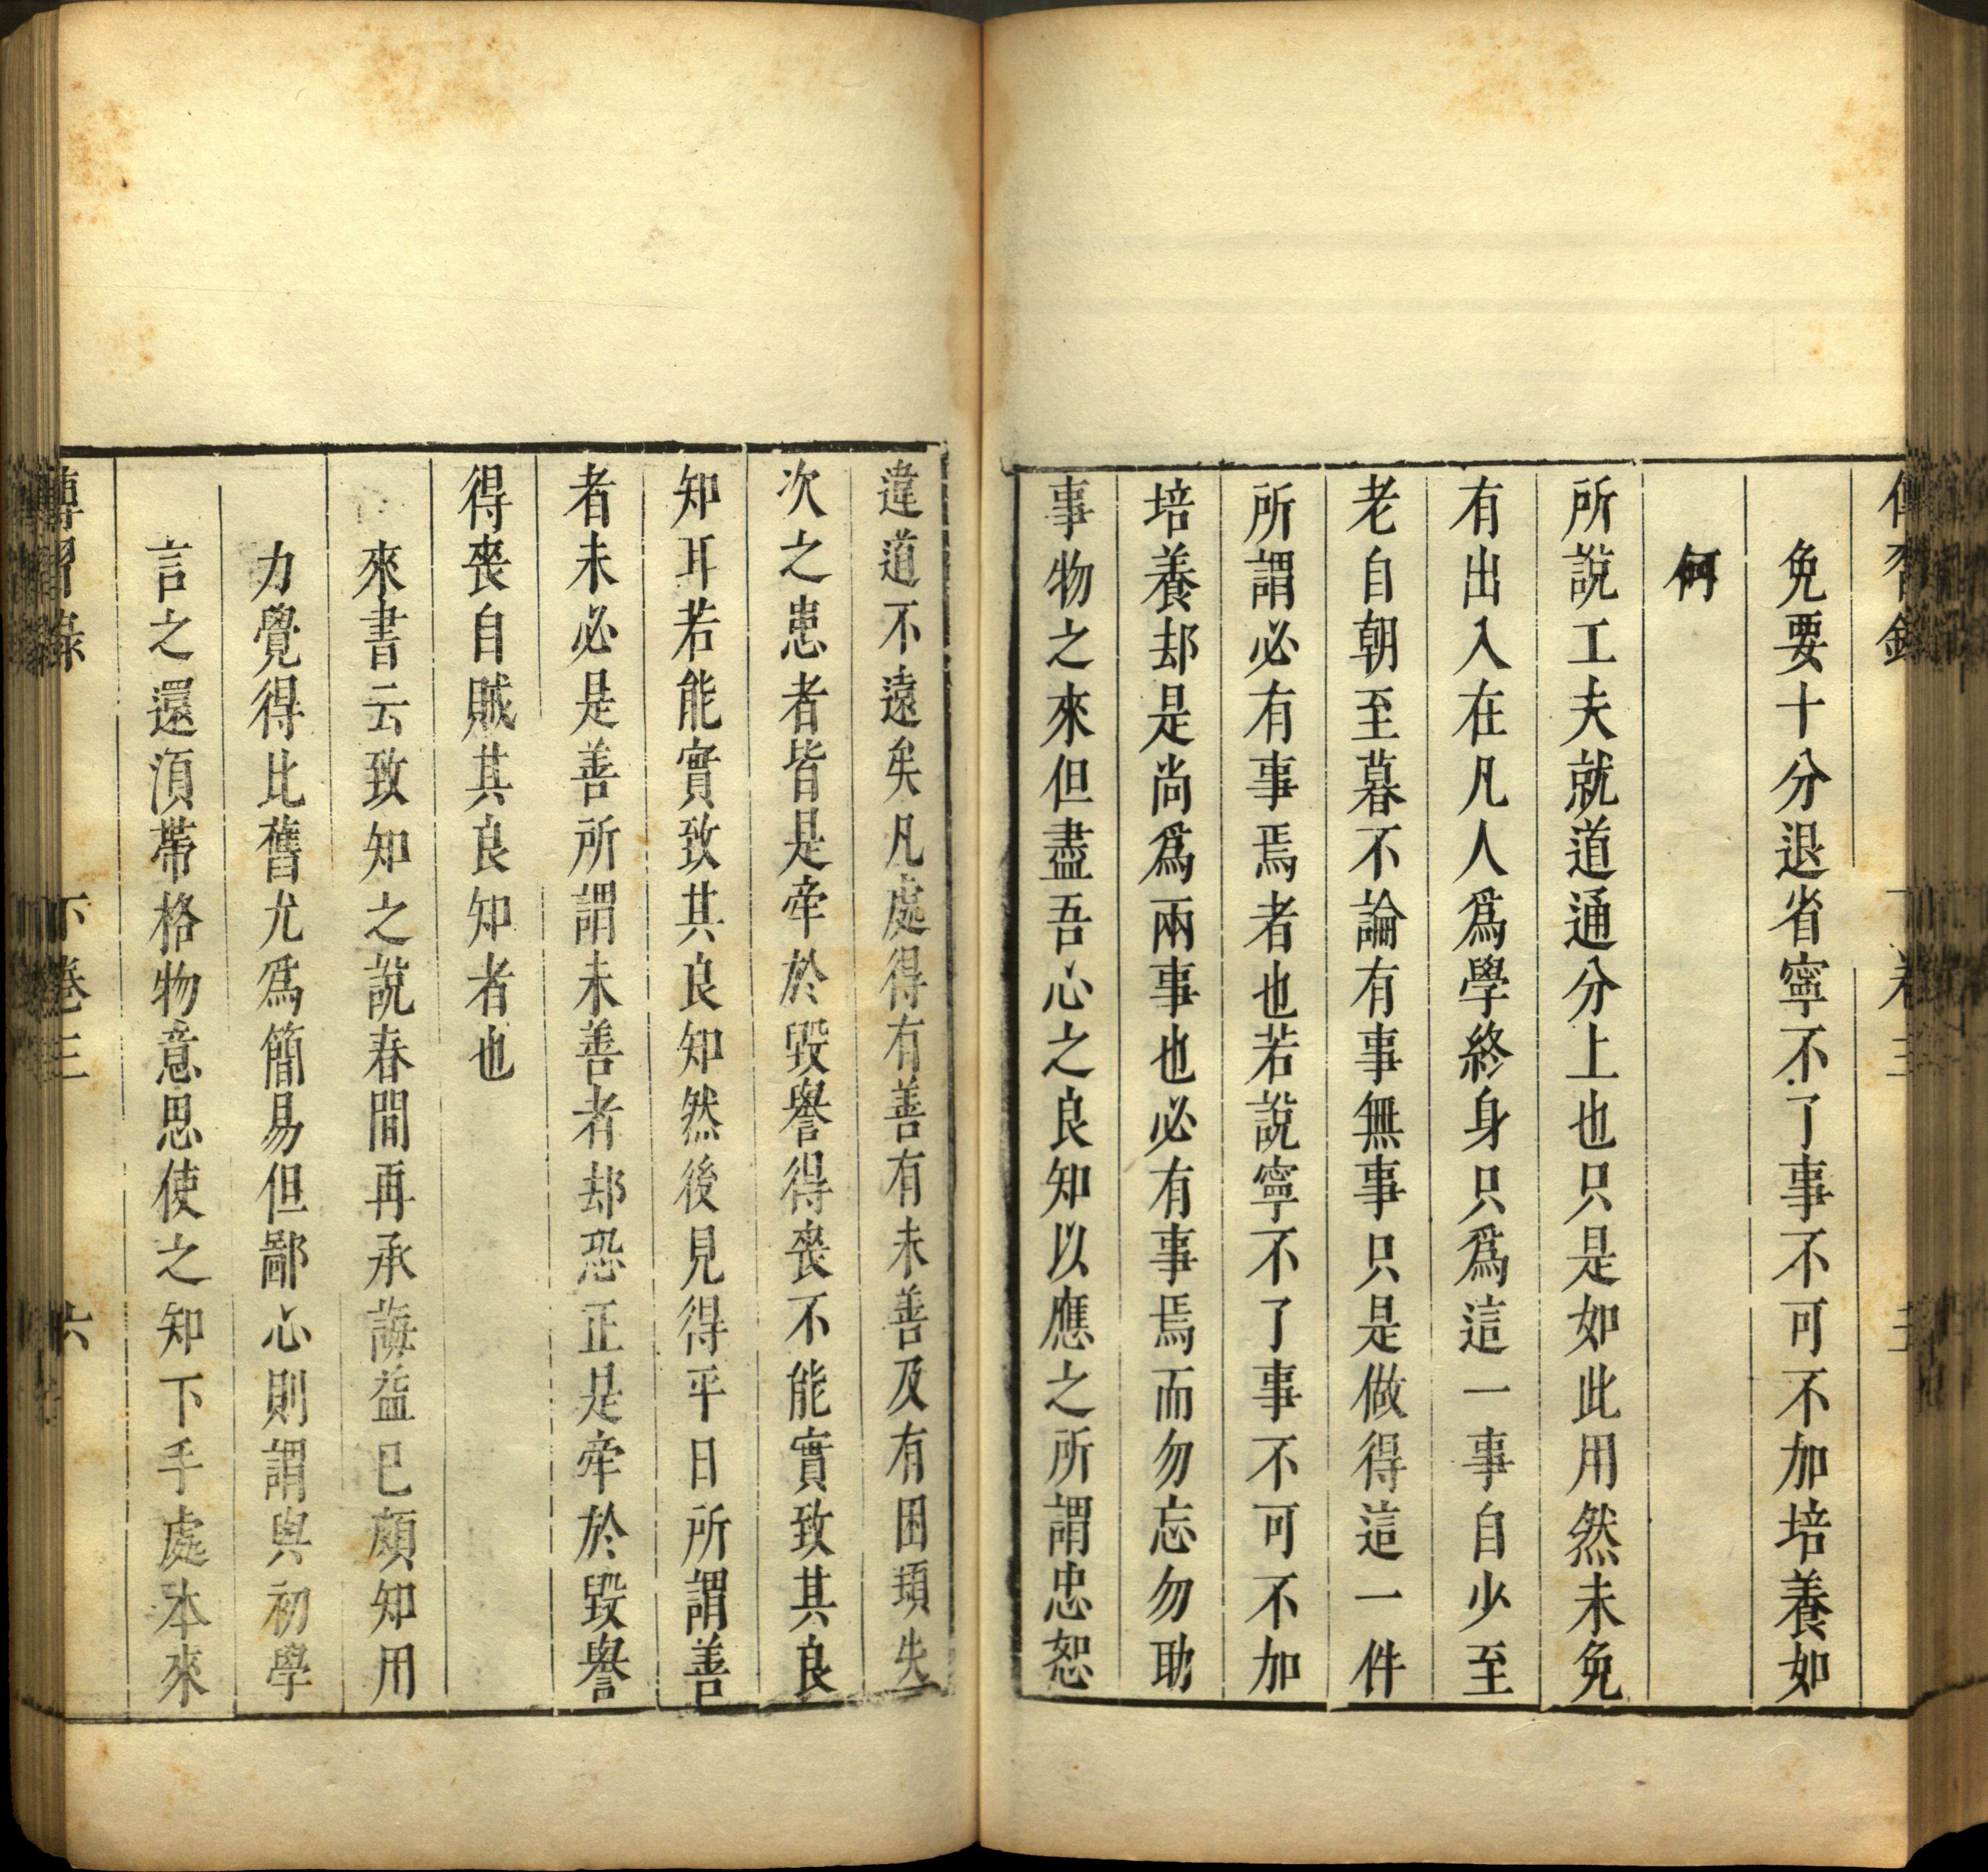 傳習錄 卷三
免要十分退省寧不了事不可不加培養如
何
所說工夫就道通分上也只是如此用然未免
有出入在凡人爲學終身只爲這一事自少至
老自朝至暮不論有事無事只是做得這一件
所謂必有事焉者也若說寧不了事不可不加
培養却是尚爲兩事也必有事焉而勿忘勿助
事物之來但盡吾心之良知以應之所謂忠恕
違道不遠矣凡處得有善有未善及有困頓失
次之患者皆是牽於毀譽得喪不能實致其良
知耳若能實致其良知然後見得平日所謂善
者未必是善所謂未善者却恐正是牽於毀譽
得喪自賊其良知者也
來書云致知之說春間再承誨益已頗知用
力覺得比舊尤爲簡易但鄙心則謂與初學
言之還須帶格物意思使之知下手處本來
傳習錄 下卷三 六